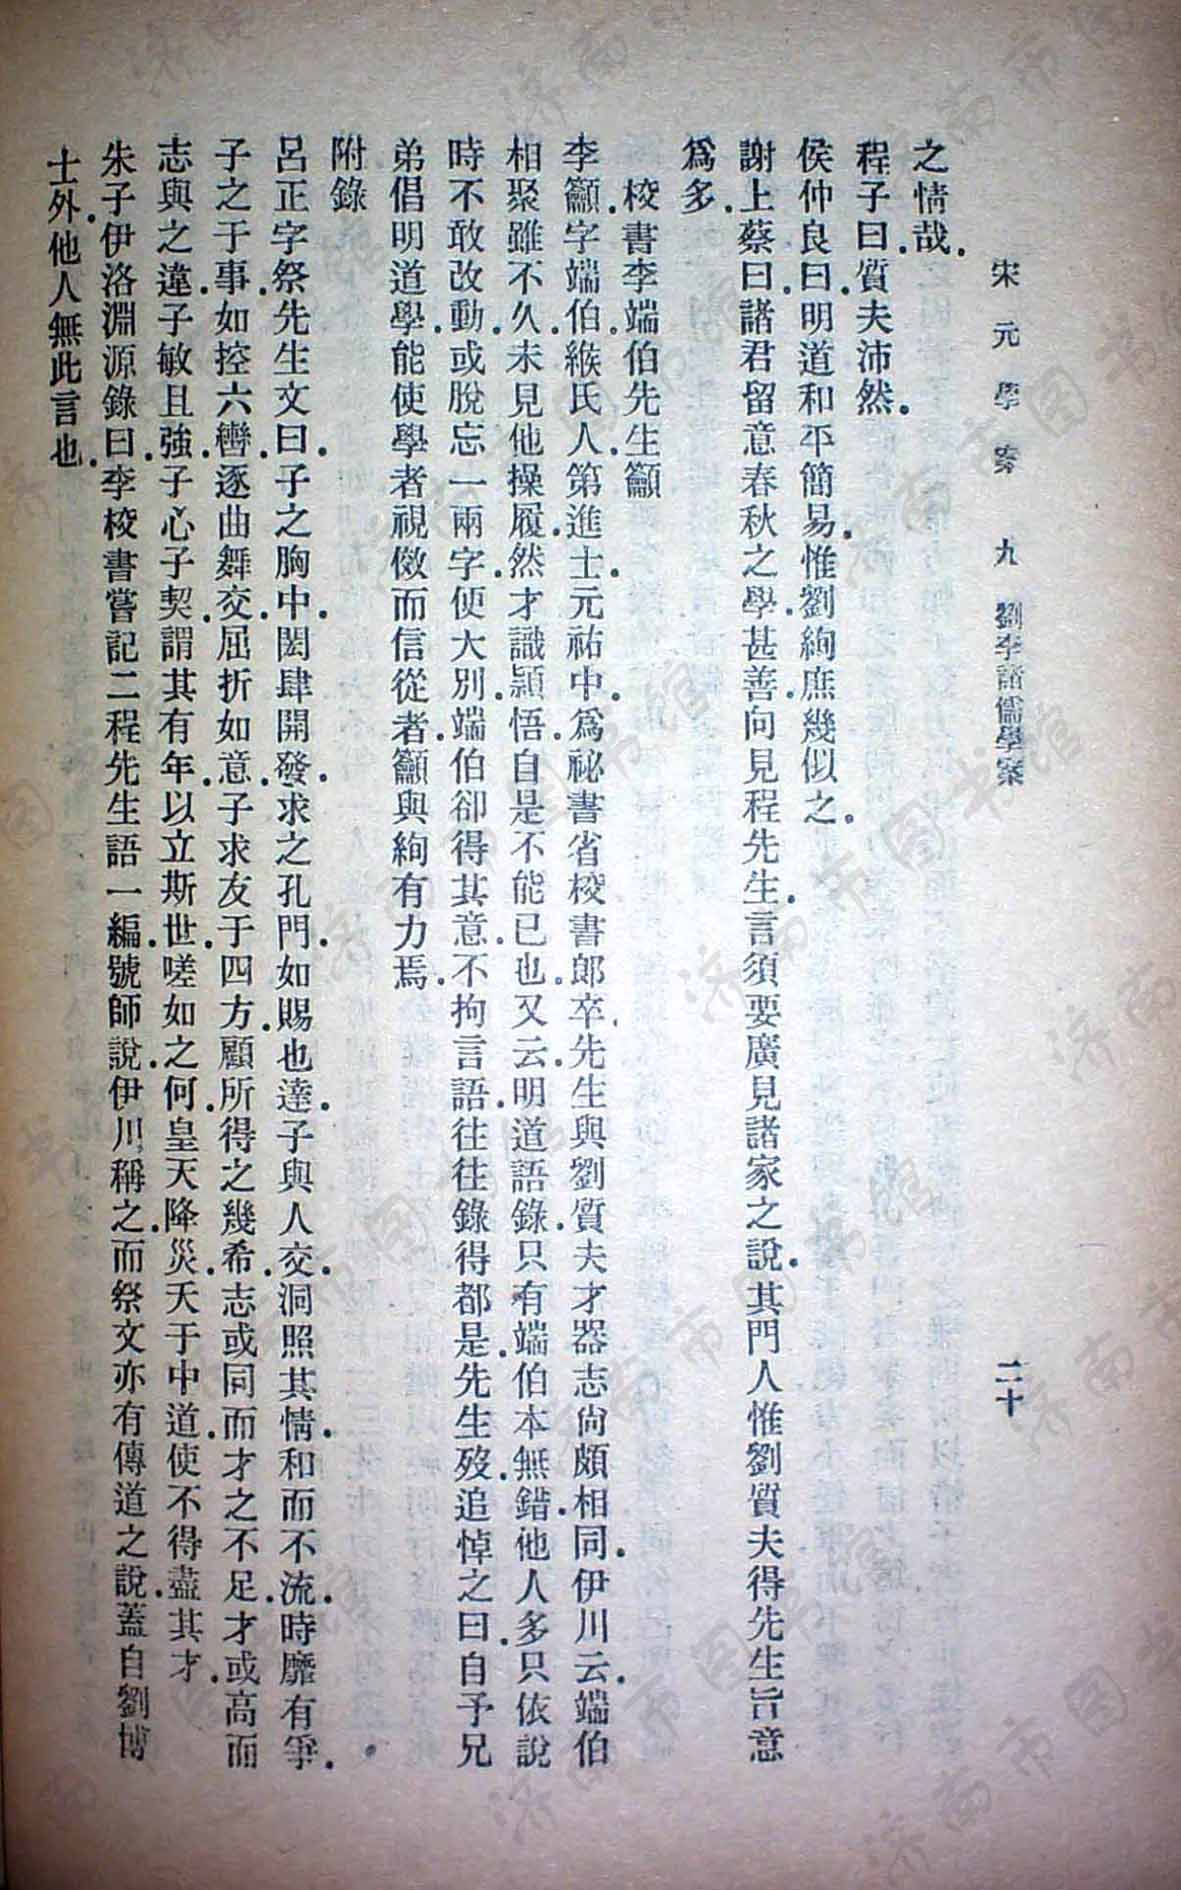 宋元學案 九 劉李諸儒學案 二十
之情哉.
程子曰.質夫沛然.
侯仲良曰.明道和平簡易.惟劉絢庶幾似之.
謝上蔡曰.諸君留意春秋之學.甚善.向見程先生.言須要廣見諸家之說.其門人惟劉質夫得先生旨意
爲多.
校書李端伯先生籲
李籲.字端伯.緱氏人.第進士.元祐中.爲祕書省校書郎.卒.先生與劉質夫才器志尙頗相同.伊川云.端伯
相聚雖不久.未見他操履.然才識穎悟.自是不能已也.又云.明道語錄.只有端伯本無錯.他人多只依說
時不敢改動.或脫忘一兩字.便大別.端伯卻得其意.不拘言語.往往錄得都是.先生歿.追悼之曰.自予兄
弟倡明道學.能使學者視傚而信從者.籲與絢有力焉.
附錄
呂正字祭先生文曰.子之胸中.閎肆開發.求之孔門.如賜也達.子與人交.洞照其情.和而不流.時靡有爭.
子之于事.如控六轡.逐曲舞交.屈折如意.子求友于四方.顧所得之幾希.志或同而才之不足.才或高而
志與之違.子敏且強.子心子契.謂其有年.以立斯世.嗟如之何.皇天降災.夭于中道.使不得盡其才.
朱子伊洛淵源錄曰.李校書嘗記二程先生語一編.號師說.伊川稱之.而祭文亦有傳道之說.蓋自劉博
士外.他人無此言也.